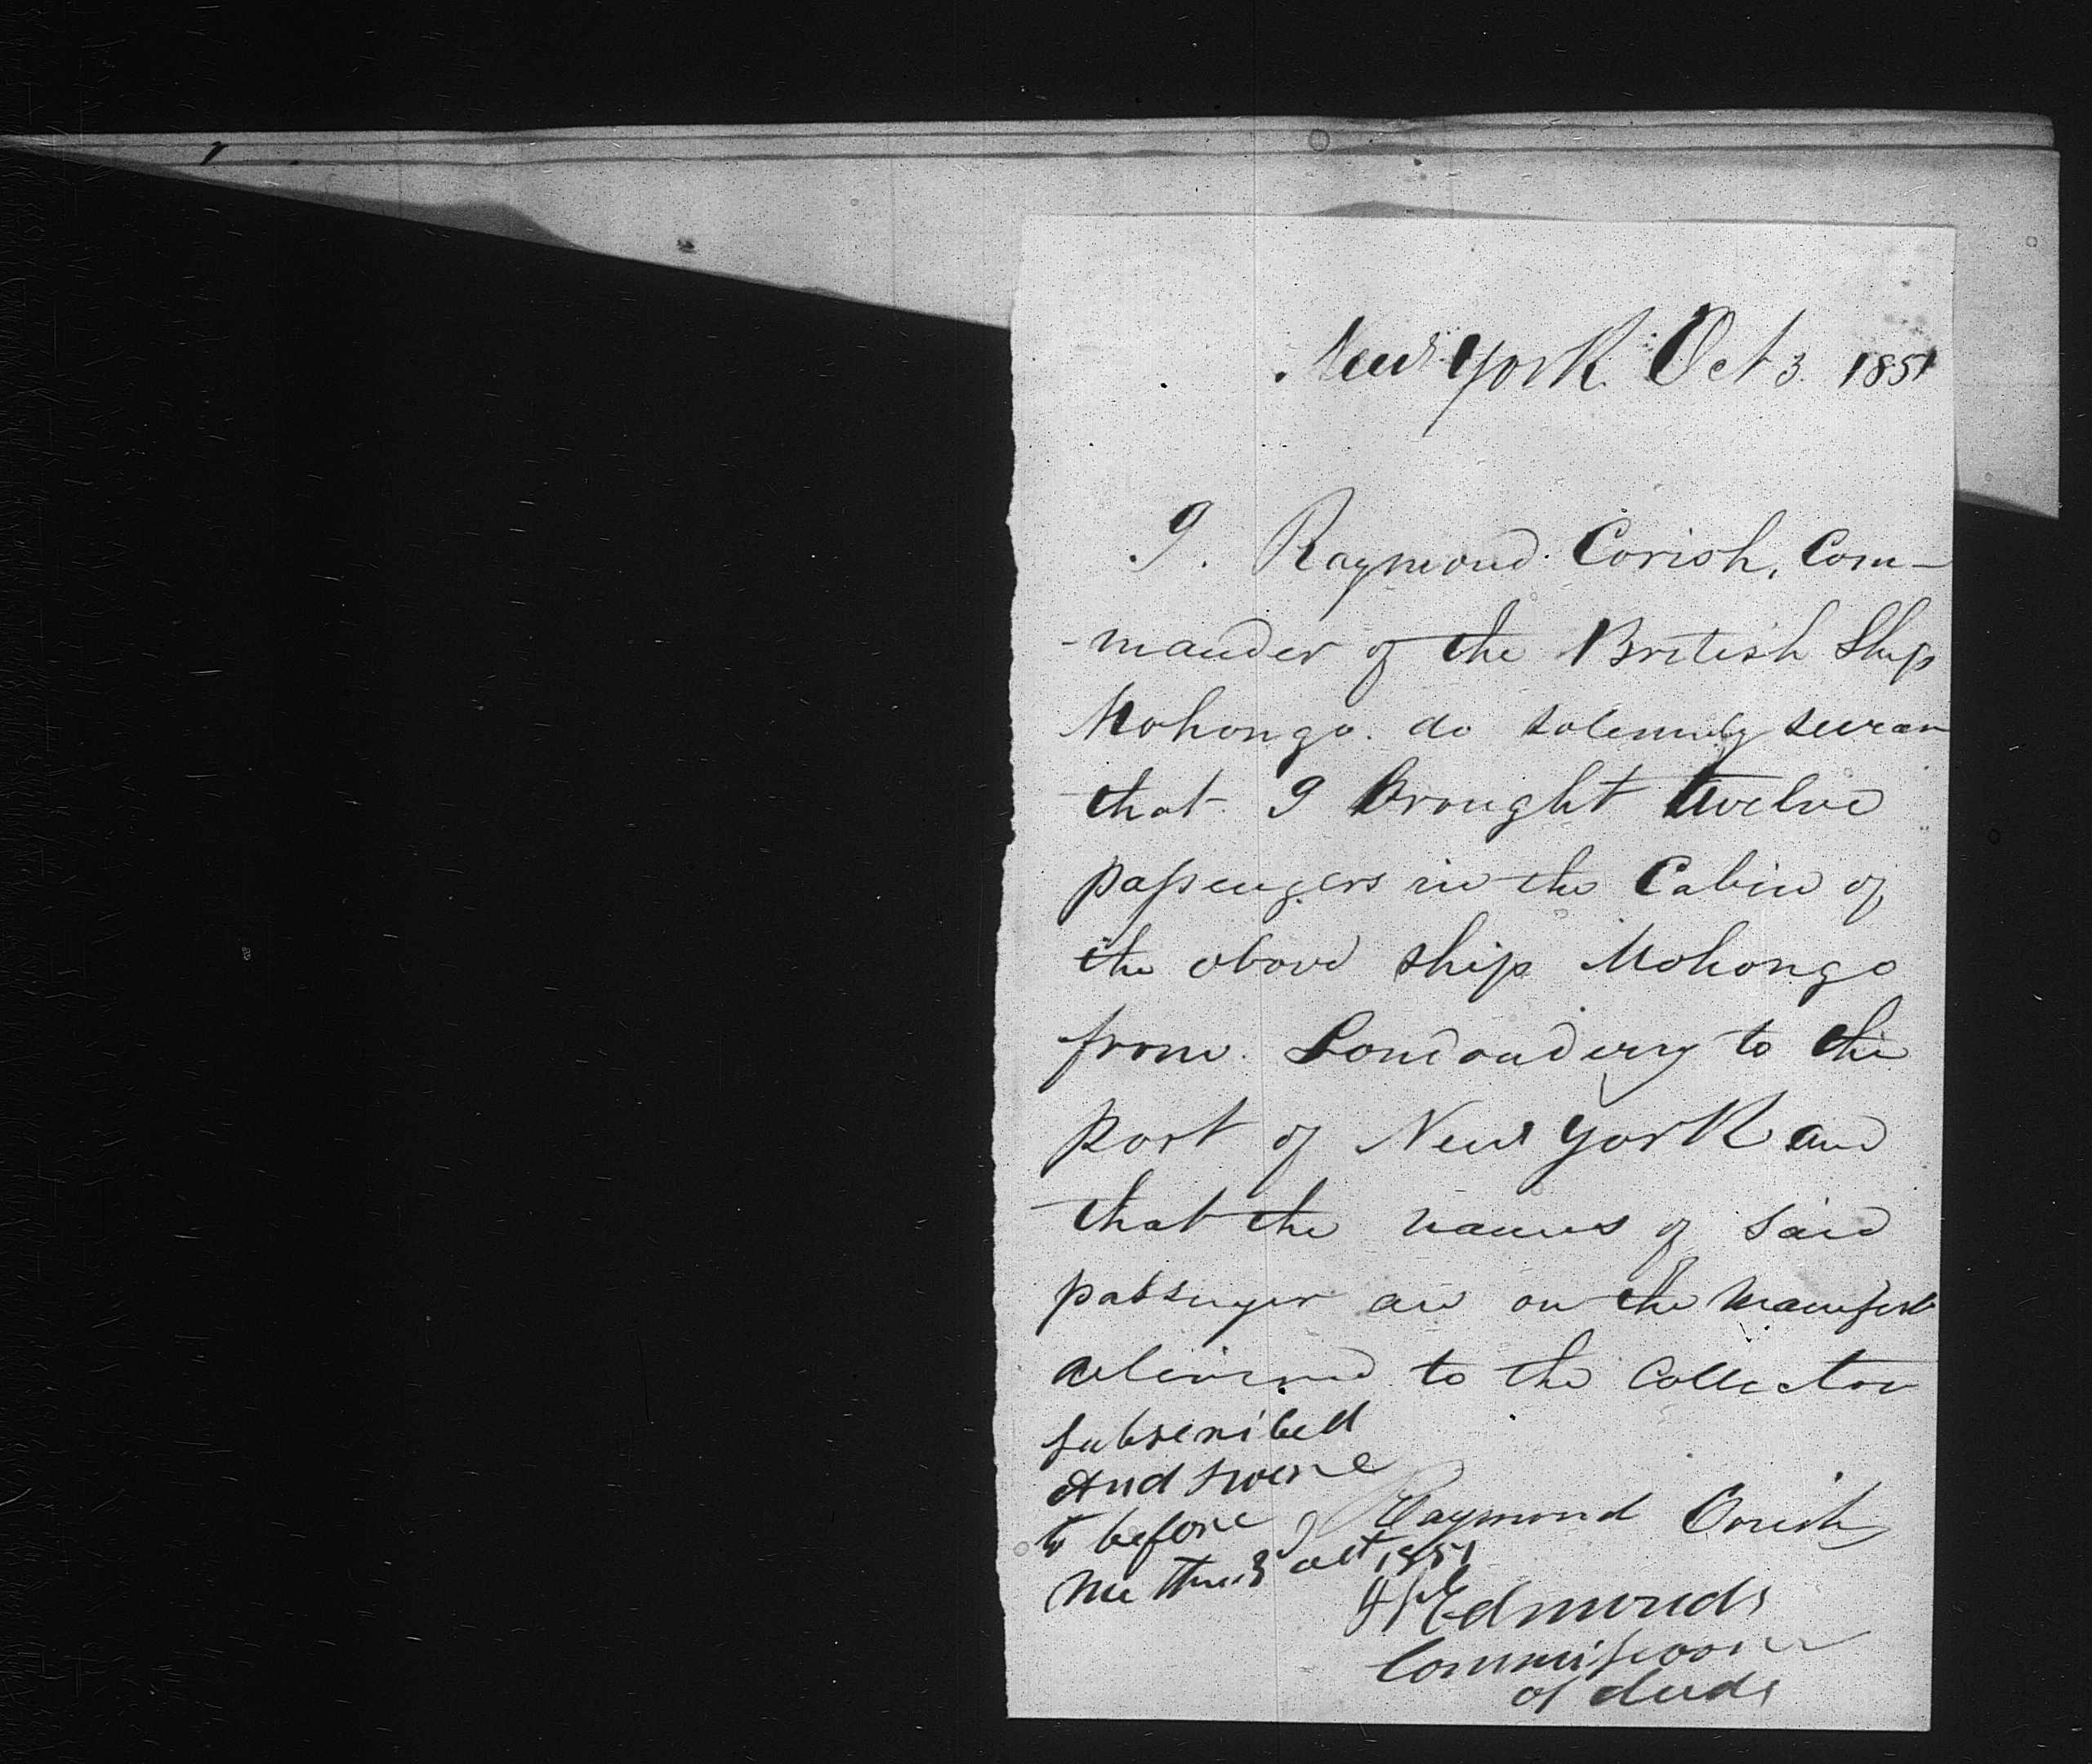 New York Oct 3. 1851
I. Raymond Corish, Com-
-mander of the British Ship
Mohongo. do solemnly swear
that I Brought twelve
passengers in the Cabin of
the above ship Mohongo
from Londonderry to the
port of New York and
that the names of said
passenger are on the Manifest
delivered to the Collector
subscribed
And sworne
to before
me this 3 oct 1851
Raymond Corish
Edmonds
Commissioner
of deeds